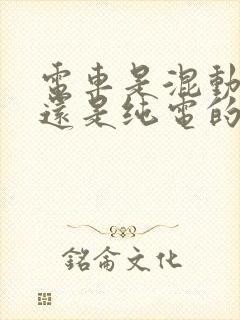 電車是混動
還是纯電的
銘侖文化